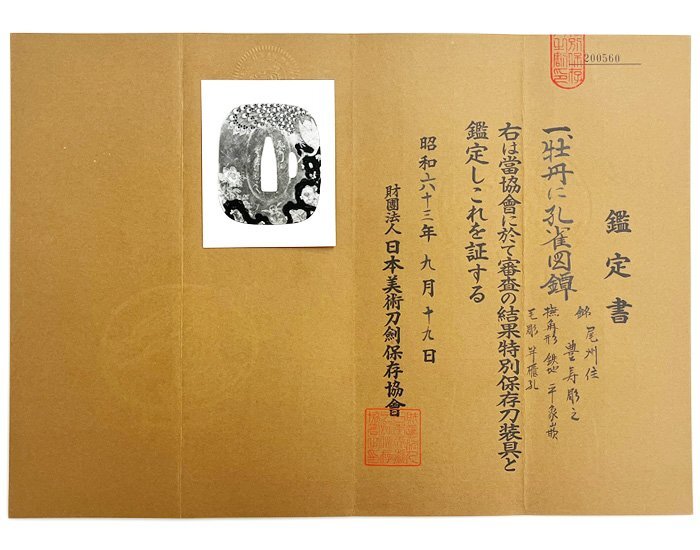 200560
鑑定書
一、牡丹に孔雀図鐔
銘 尾州住
豊寿彫之
撫角形 鉄地 平象嵌
毛彫 片櫃孔
右は當協會に於て審査の結果特別保存刀装具と
鑑定しこれを証する
昭和六十三年九月十九日
財團法人日本美術刀劍保存協會